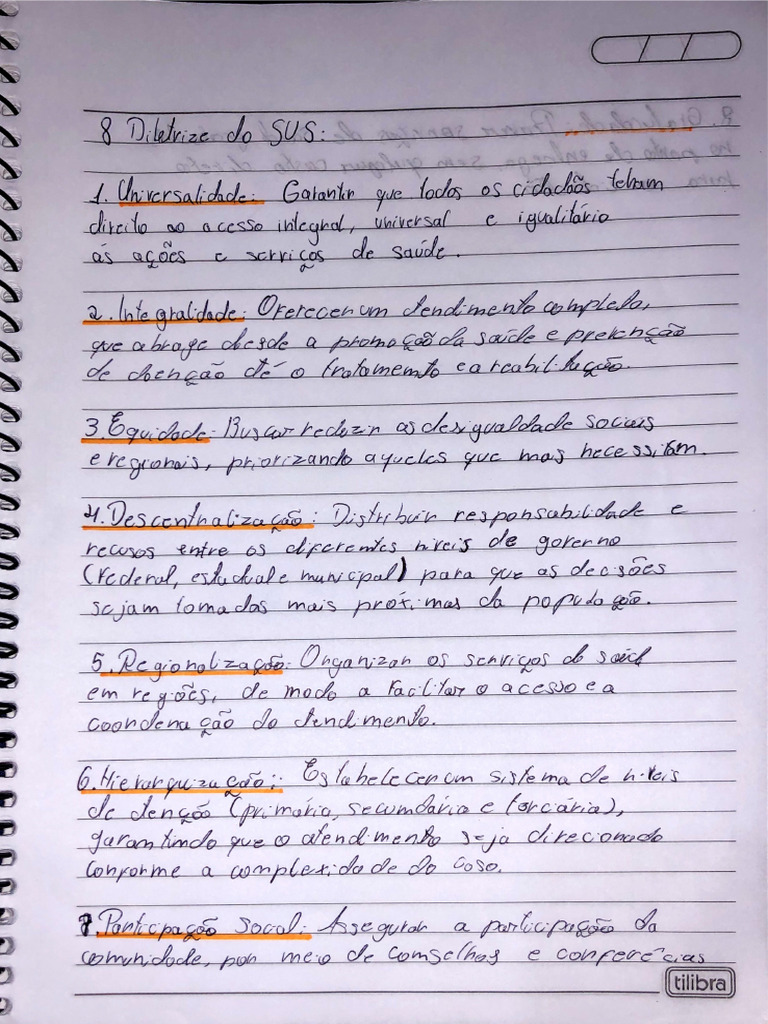 8 Diletrize do SUS:
1. Universalidade: Garantir que todos os cidadãos tenham
direito ao acesso integral, universal e igualitário
ás ações e serviços de saúde.
2. Integralidade: Oferecer um atendimento completo,
que abrage desde a promoção da saúde e prevenção
de doenção até o tratamento e a reabilitação.
3. Equidade: Buscar reduzir as desigualdade sociais
e regionais, priorizando aqueles que mais necessitam.
4. Descentralização: Distribuir responsabilidade e
recusos entre os diferentes níveis de governo
(federal, estadual e municipal) para que as decisões
sejam tomadas mais próximas da população.
5. Regionalização: Organizar os serviços de saúde
em regiões, de modo a facilitar o acesso e a
coordenação do atendimento.
6. Hierarquização: Estabelecer um sistema de níveis
de atenção (primária, secundária e terciária),
garantindo que o atendimento seja direcionado
conforme a complexidade do caso.
7. Participação Social: Assegurar a participação da
comunidade, por meio de conselhos e conferências
tilibra